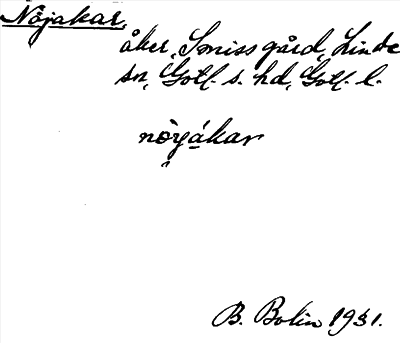 Nöjakar,
åker, Smiss gård, Linde
sn, Gotl. s. hd, Gotl. l.
nöyákar
B. Bolin 1931.